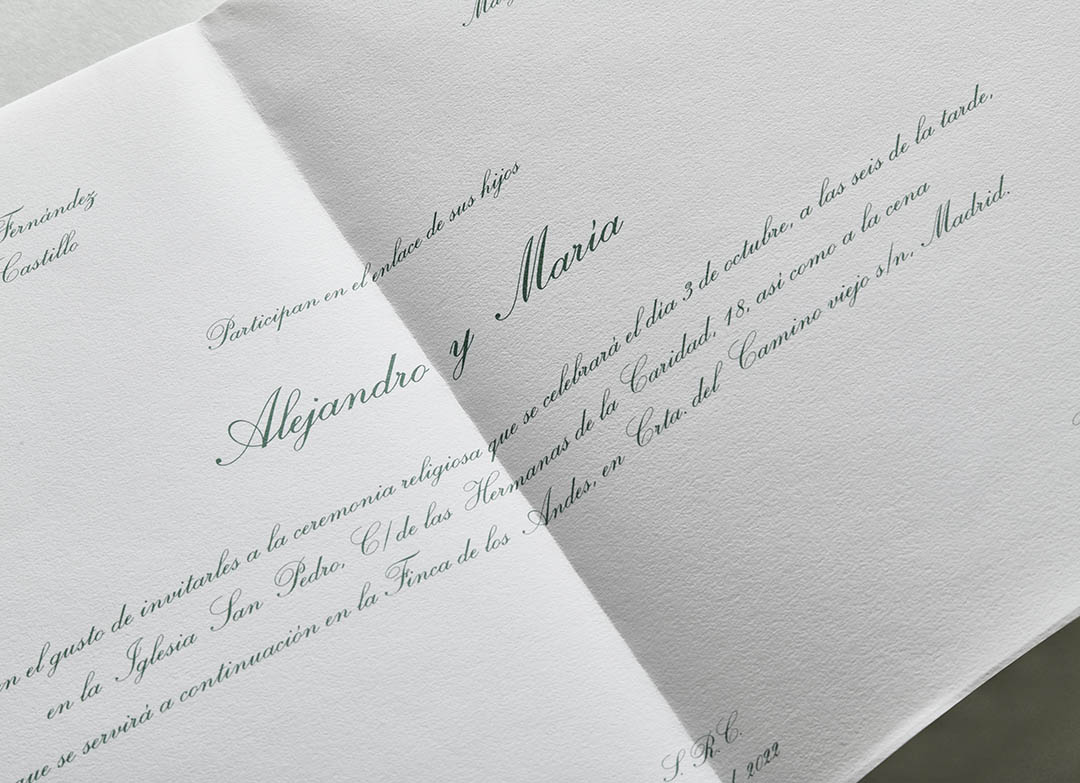 Fernández
Castillo
Participan en el enlace de sus hijos
Alejandro y María
el gusto de invitarles a la ceremonia religiosa que se celebrará el día 3 de octubre, a las seis de la tarde,
en la Iglesia San Pedro, C/ de las Hermanas de la Caridad, 18, así como a la cena
que se servirá a continuación en la Finca de los Andes, en Crta. del Camino viejo s/n, Madrid.
S. R. C.
2022